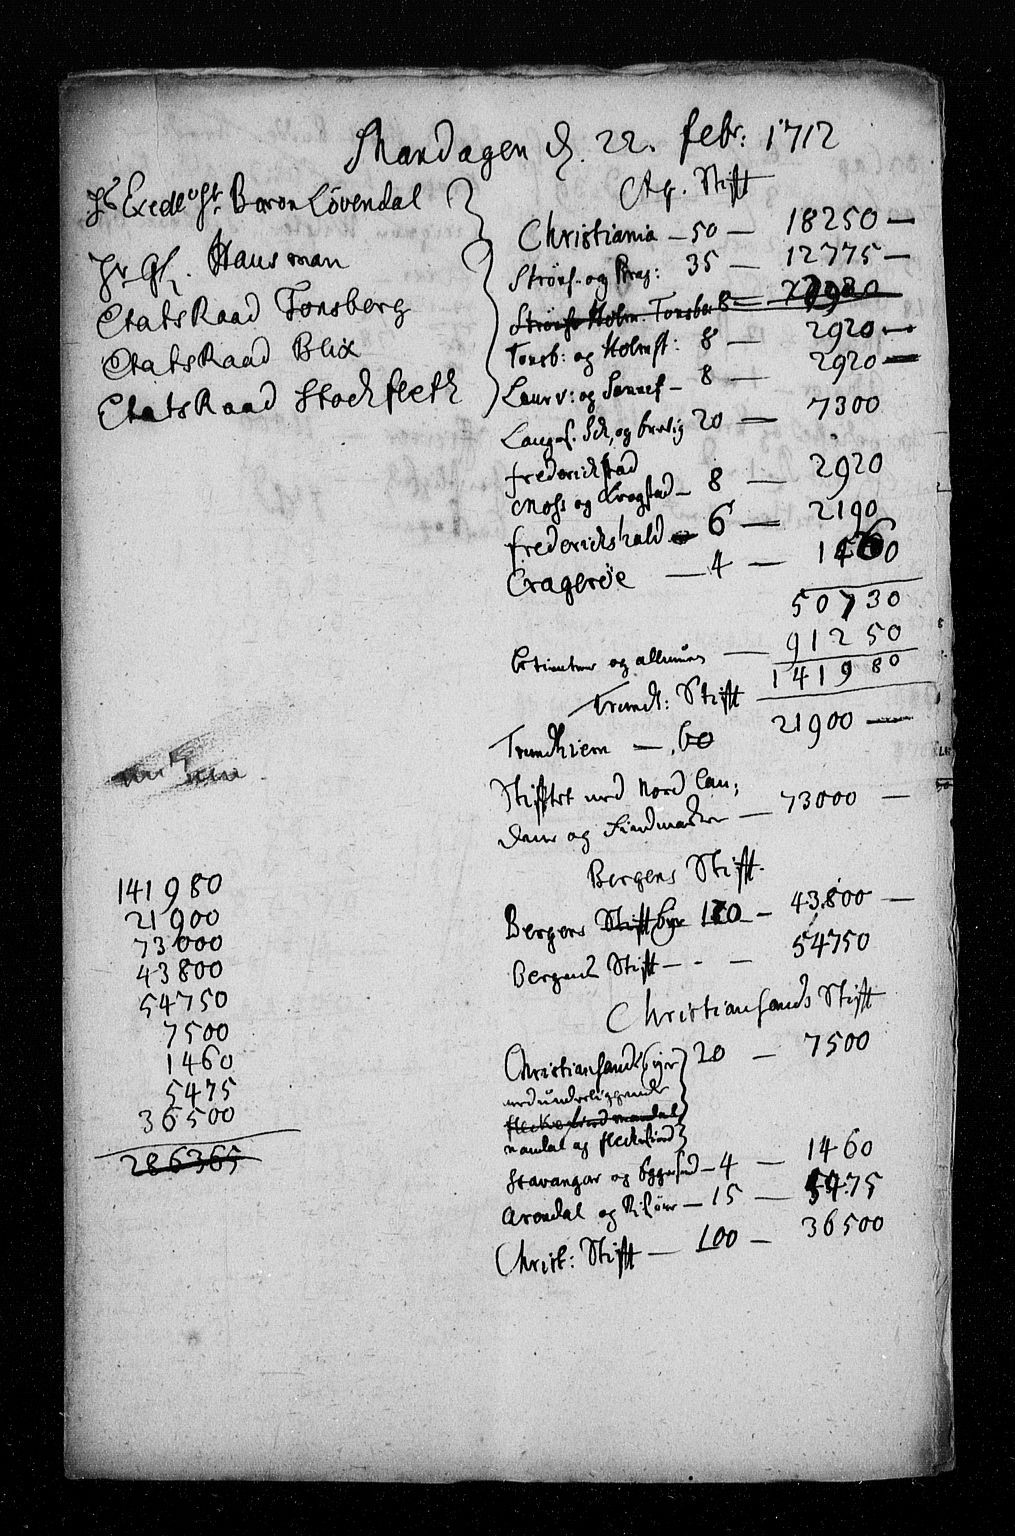 Mandagen d. 22. Febr: 1712
Hs Excell: Hr. Baron Løvendal
Hr Gl. Hausman
EtatsRaad Tonsberg
EtatsRaad Blix
EtatsRaad Stockfleth
Stift
Christiania — 50 — 18250 —
Strøms. og Brag: 35 — 12775 —
Strøms Holm Tonsber 8
Tonsb: og Holmst: 8 — 2920 —
Laurv: og Sannef — 8 — 2920 —
Langes. Sch, og brevig 20 — 7300
frederichstad
Moss og Krogstad — 8 — 2920
frederichshald 6 — 2190
Cragerøe — 4 — 1460
50730
og allmuen — 91250
141980
Trundh: Stift
Trundhiem — 60 21900 —
Stifftet med Nord Lan;
dene og Findmarken — 73000 —
Bergens Stift.
Bergens Stift bye 120 — 43800 —
Bergens Stift — - — 54750
Christiansands Stift
Christiansands byer 20 — 7500
med underliggende
fleckefiord mandal
mandal og fleckefiord
Stavanger og Eggersund — 4 — 1460
Arendal og Risøer — 15 — 5475
Christ: Stift — 100 — 36500
141980
21900
73000
43800
54750
7500
1460
5475
36500
286365